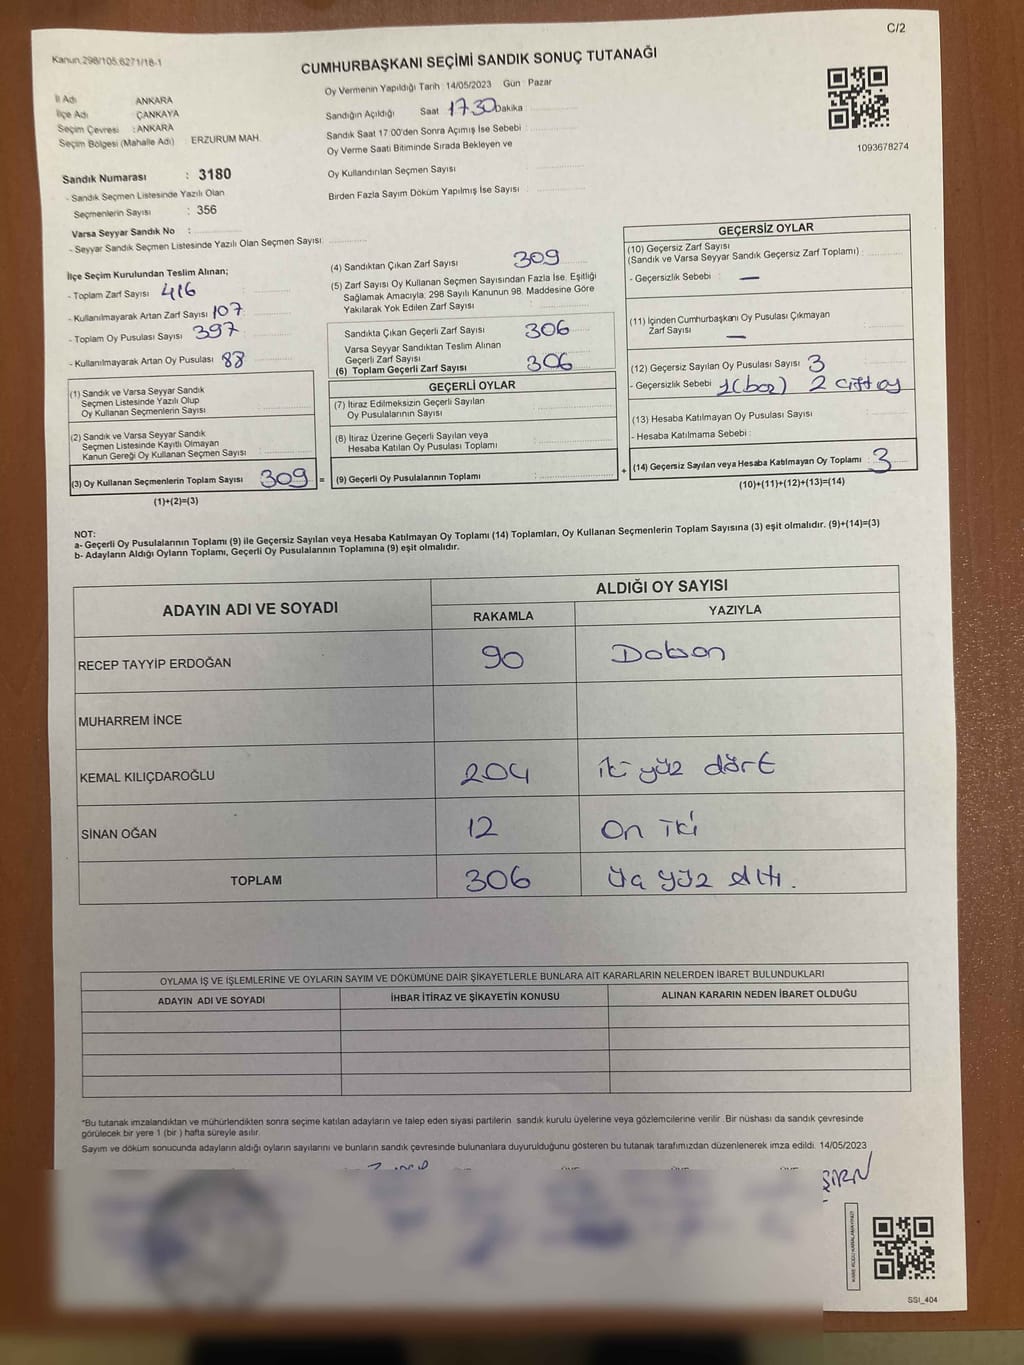 C/2
Kanun.298/105,6271/18-1
CUMHURBAŞKANI SEÇİMİ SANDIK SONUÇ TUTANAĞI
İl Adı ANKARA
İlçe Adı ÇANKAYA
Seçim Çevresi : ANKARA
Seçim Bölgesi (Mahalle Adı) ERZURUM MAH.
Oy Vermenin Yapıldığı Tarih : 14/05/2023 Gün : Pazar
Sandığın Açıldığı Saat 17.30 Dakika
Sandık Saat 17:00'den Sonra Açımış İse Sebebi :
Oy Verme Saati Bitiminde Sırada Bekleyen ve
Oy Kullandırılan Seçmen Sayısı
Birden Fazla Sayım Döküm Yapılmış İse Sayısı :
1093678274
Sandık Numarası : 3180
- Sandık Seçmen Listesinde Yazılı Olan
Seçmenlerin Sayısı : 356
Varsa Seyyar Sandık No :
- Seyyar Sandık Seçmen Listesinde Yazılı Olan Seçmen Sayısı:
İlçe Seçim Kurulundan Teslim Alınan;
- Toplam Zarf Sayısı 416 :
- Kullanılmayarak Artan Zarf Sayısı 107
- Toplam Oy Pusulası Sayısı 397 :
- Kullanılmayarak Artan Oy Pusulası 88
(1) Sandık ve Varsa Seyyar Sandık
Seçmen Listesinde Yazılı Olup
Oy Kullanan Seçmenlerin Sayısı :
(2) Sandık ve Varsa Seyyar Sandık
Seçmen Listesinde Kayıtlı Olmayan
Kanun Gereği Oy Kullanan Seçmen Sayısı :
(3) Oy Kullanan Seçmenlerin Toplam Sayısı 309 =
(1)+(2)=(3)
(4) Sandıktan Çıkan Zarf Sayısı 309
(5) Zarf Sayısı Oy Kullanan Seçmen Sayısından Fazla İse, Eşitliği
Sağlamak Amacıyla, 298 Sayılı Kanunun 98. Maddesine Göre
Yakılarak Yok Edilen Zarf Sayısı
Sandıkta Çıkan Geçerli Zarf Sayısı 306
Varsa Seyyar Sandıktan Teslim Alınan
Geçerli Zarf Sayısı
(6) Toplam Geçerli Zarf Sayısı 306
GEÇERLİ OYLAR
(7) İtiraz Edilmeksizin Geçerli Sayılan
Oy Pusulalarının Sayısı :
(8) İtiraz Üzerine Geçerli Sayılan veya
Hesaba Katılan Oy Pusulası Toplamı :
(9) Geçerli Oy Pusulalarının Toplamı : +
GEÇERSİZ OYLAR
(10) Geçersiz Zarf Sayısı
(Sandık ve Varsa Seyyar Sandık Geçersiz Zarf Toplamı) :
- Geçersizlik Sebebi : —
(11) İçinden Cumhurbaşkanı Oy Pusulası Çıkmayan
Zarf Sayısı —
(12) Geçersiz Sayılan Oy Pusulası Sayısı 3
- Geçersizlik Sebebi 1(boş) 2 çift oy
(13) Hesaba Katılmayan Oy Pusulası Sayısı
- Hesaba Katılmama Sebebi :
(14) Geçersiz Sayılan veya Hesaba Katılmayan Oy Toplamı : 3
(10)+(11)+(12)+(13)=(14)
NOT:
a- Geçerli Oy Pusulalarının Toplamı (9) ile Geçersiz Sayılan veya Hesaba Katılmayan Oy Toplamı (14) Toplamları, Oy Kullanan Seçmenlerin Toplam Sayısına (3) eşit olmalıdır. (9)+(14)=(3)
b- Adayların Aldığı Oyların Toplamı, Geçerli Oy Pusulalarının Toplamına (9) eşit olmalıdır.
ADAYIN ADI VE SOYADI ALDIĞI OY SAYISI
RAKAMLA YAZIYLA
RECEP TAYYİP ERDOĞAN 90 Doksan
MUHARREM İNCE
KEMAL KILIÇDAROĞLU 204 iki yüz dört
SİNAN OĞAN 12 On iki
TOPLAM 306 üç yüz altı.
OYLAMA İŞ VE İŞLEMLERİNE VE OYLARIN SAYIM VE DÖKÜMÜNE DAİR ŞİKAYETLERLE BUNLARA AİT KARARLARIN NELERDEN İBARET BULUNDUKLARI
ADAYIN ADI VE SOYADI İHBAR İTİRAZ VE ŞİKAYETİN KONUSU ALINAN KARARIN NEDEN İBARET OLDUĞU
*Bu tutanak imzalandıktan ve mühürlendikten sonra seçime katılan adayların ve talep eden siyasi partilerin sandık kurulu üyelerine veya gözlemcilerine verilir. Bir nüshası da sandık çevresinde
görülecek bir yere 1 (bir) hafta süreyle asılır.
Sayım ve döküm sonucunda adayların aldığı oyların sayılarını ve bunların sandık çevresinde bulunanlara duyurulduğunu gösteren bu tutanak tarafımızdan düzenlenerek imza edildi. 14/05/2023
SSI_404